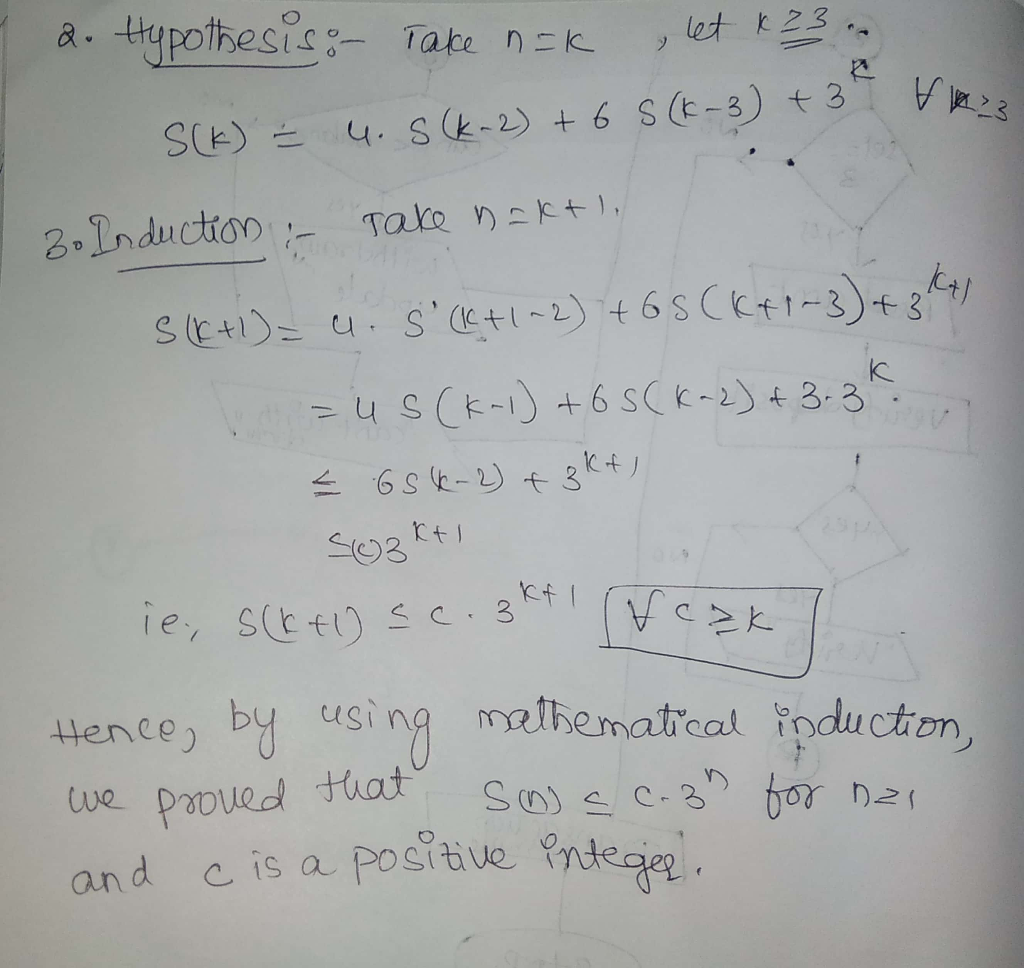 2. Hypothesis:- Take n=k , let k≥3
S(k) = 4. S(k-2) + 6 S(k-3) + 3^k ∀ k≥3
3. Induction :- Take n=k+1.
S(k+1)= 4. S(k+1-2) + 6S(k+1-3)+3^k+1
= 4 S(k-1) + 6S(k-2)+3.3^k.
≤ 6S(k-2) + 3^k+1
3^k+1
ie., S(k+1) ≤ c. 3^k+1 ∀ c≥k
Hence, by using mathematical induction,
we proved that S(n) ≤ c.3^n for n≥1
and c is a positive integer.